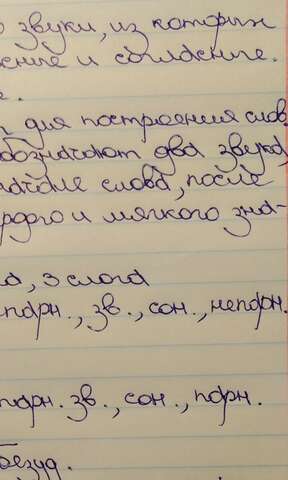 звуки, из которых
и согласные.
для построения слов.
обозначают два звука,
начале слова, после
и мягкого зна-
, 3 слога
парн., зв., сон., непарн.
парн. зв., сон., парн.
безуд.